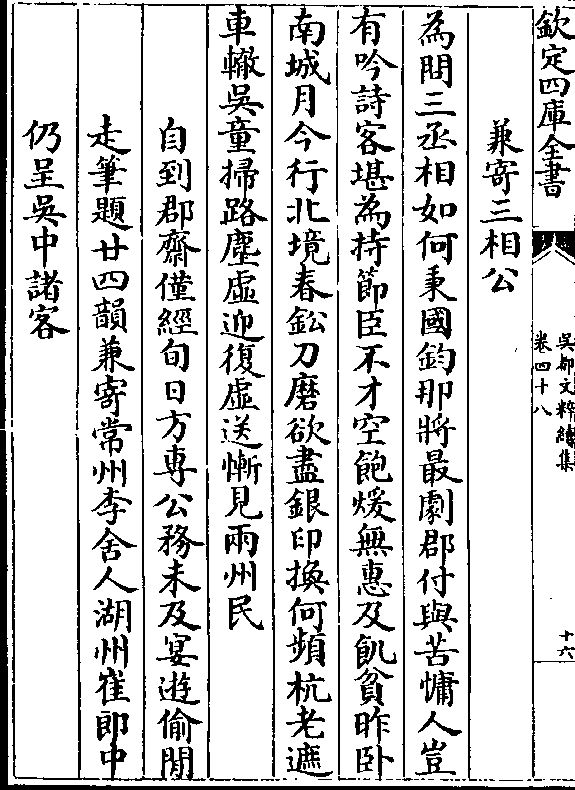 欽定四庫全書
吳都文粹續集
卷四十八
十六
兼寄三相公
為問三丞相如何秉國鈞那將最劇郡付與苦慵人豈
有吟詩客堪為持節臣不才空飽煖無惠及飢貧昨卧
南城月今行北境春鈆刀磨欲盡銀印換何頻杭老遮
車轍吳童掃路塵虛迎復虛送慚見兩州民
自到郡齋僅經旬日方專公務未及宴遊偷閒
走筆題廿四韻兼寄常州李舍人湖州崔郎中
仍呈吳中諸客